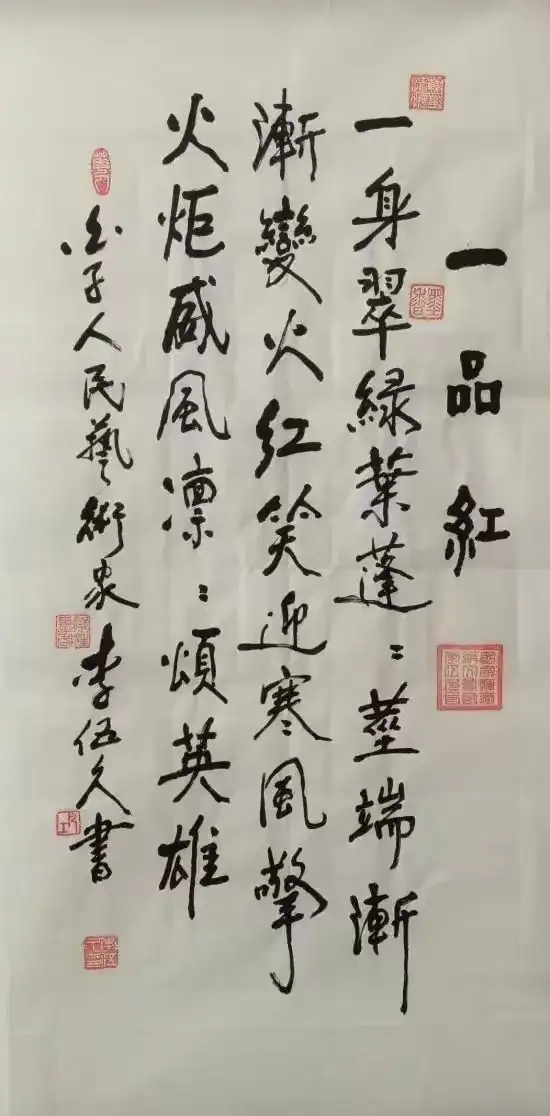 一品紅
一身翠綠葉蓬：莖端漸
漸變火紅笑迎寒風擎
火炬威風凛：頌英雄
子人民藝術家李伍久書